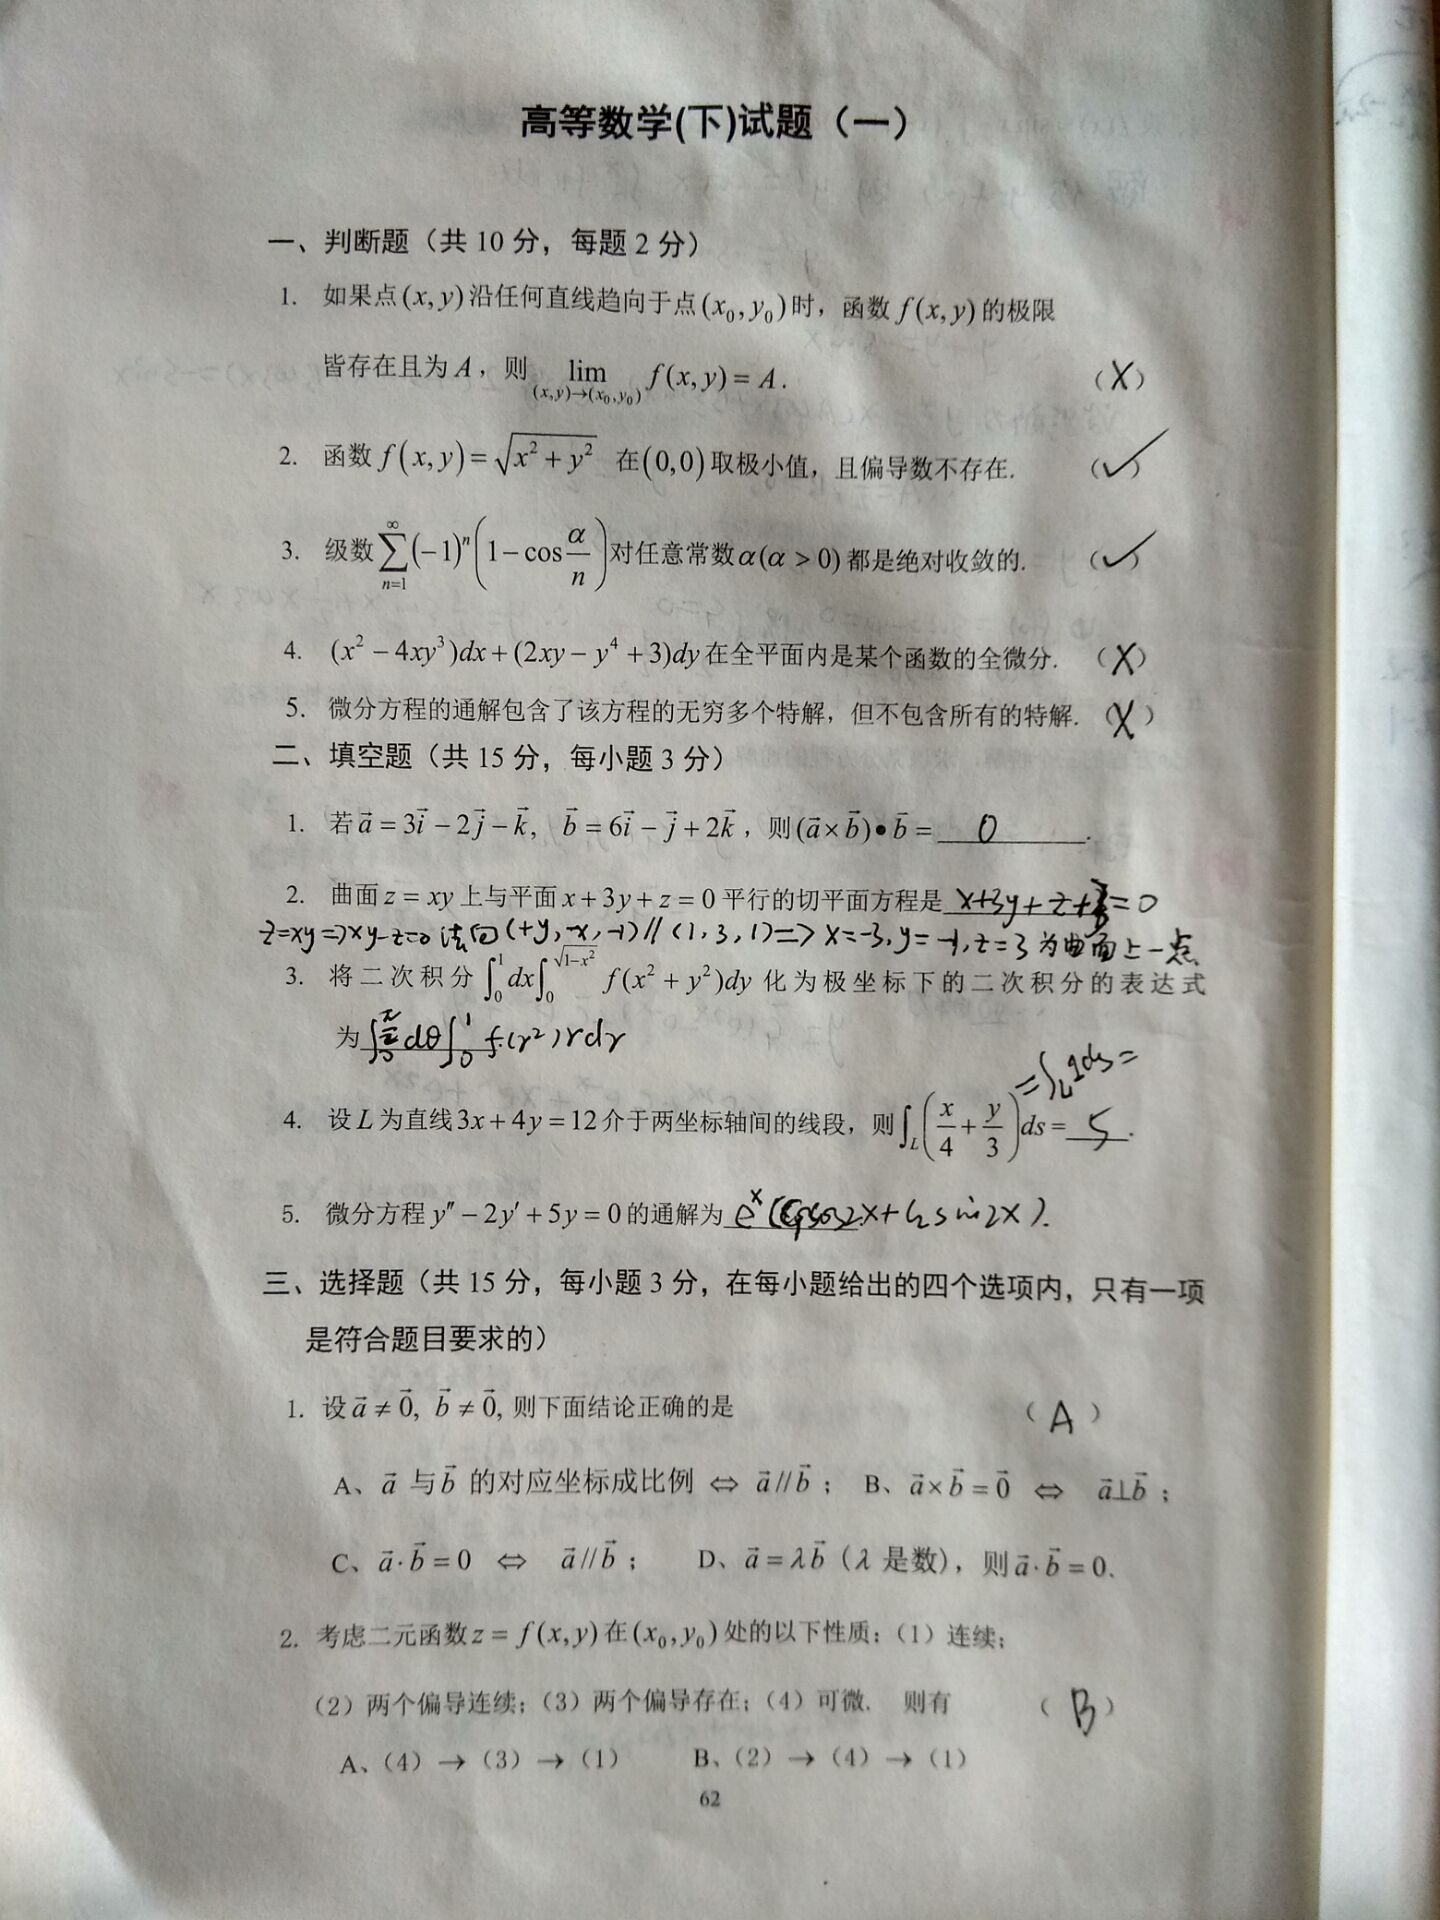 高等数学(下)试题（一）
一、判断题（共 10 分，每题 2 分）
1. 如果点(x, y)沿任何直线趋向于点(x₀, y₀)时，函数 f(x, y)的极限
皆存在且为 A，则 lim_{(x,y)→(x₀,y₀)} f(x, y) = A. （X）
2. 函数 f(x, y) = √(x² + y²) 在(0,0)取极小值，且偏导数不存在. （✓）
3. 级数 ∑_{n=1}^{∞} (−1)ⁿ(1 − cos α/n) 对任意常数α(α > 0)都是绝对收敛的. （✓）
4. (x² − 4xy³)dx + (2xy − y⁴ + 3)dy 在全平面内是某个函数的全微分. （X）
5. 微分方程的通解包含了该方程的无穷多个特解，但不包含所有的特解. （X）
二、填空题（共 15 分，每小题 3 分）
1. 若 a⃗ = 3i⃗ − 2j⃗ − k⃗, b⃗ = 6i⃗ − j⃗ + 2k⃗，则(a⃗ × b⃗)•b⃗ = 0.
2. 曲面 z = xy 上与平面 x + 3y + z = 0 平行的切平面方程是 x+3y+z+3=0
z=xy⇒xy-z=0 法向(+y, -x, -1)//(1, 3, 1)⇒x=-3, y=-1, z=3 为曲面上一点.
3. 将二次积分 ∫₀¹ dx ∫₀^{√(1−x²)} f(x² + y²)dy 化为极坐标下的二次积分的表达式
为 ∫₀^{π/2} dθ ∫₀¹ f(r²) r dr
=∫_L 1ds=
4. 设 L 为直线 3x + 4y = 12 介于两坐标轴间的线段，则 ∫_L (x/4 + y/3) ds = 5.
5. 微分方程 y″ − 2y′ + 5y = 0 的通解为 eˣ(C₁cos2x+C₂sin2x).
三、选择题（共 15 分，每小题 3 分，在每小题给出的四个选项内，只有一项
是符合题目要求的）
1. 设 a⃗ ≠ 0⃗, b⃗ ≠ 0⃗, 则下面结论正确的是 （A）
A、a⃗ 与 b⃗ 的对应坐标成比例 ⇔ a⃗//b⃗； B、a⃗×b⃗ = 0⃗ ⇔ a⃗⊥b⃗；
C、a⃗·b⃗ = 0 ⇔ a⃗//b⃗； D、a⃗ = λb⃗（λ 是数），则 a⃗·b⃗ = 0.
2. 考虑二元函数 z = f(x, y) 在 (x₀, y₀) 处的以下性质：（1）连续；
（2）两个偏导连续；（3）两个偏导存在；（4）可微. 则有 （B）
A、（4）→（3）→（1） B、（2）→（4）→（1）
62